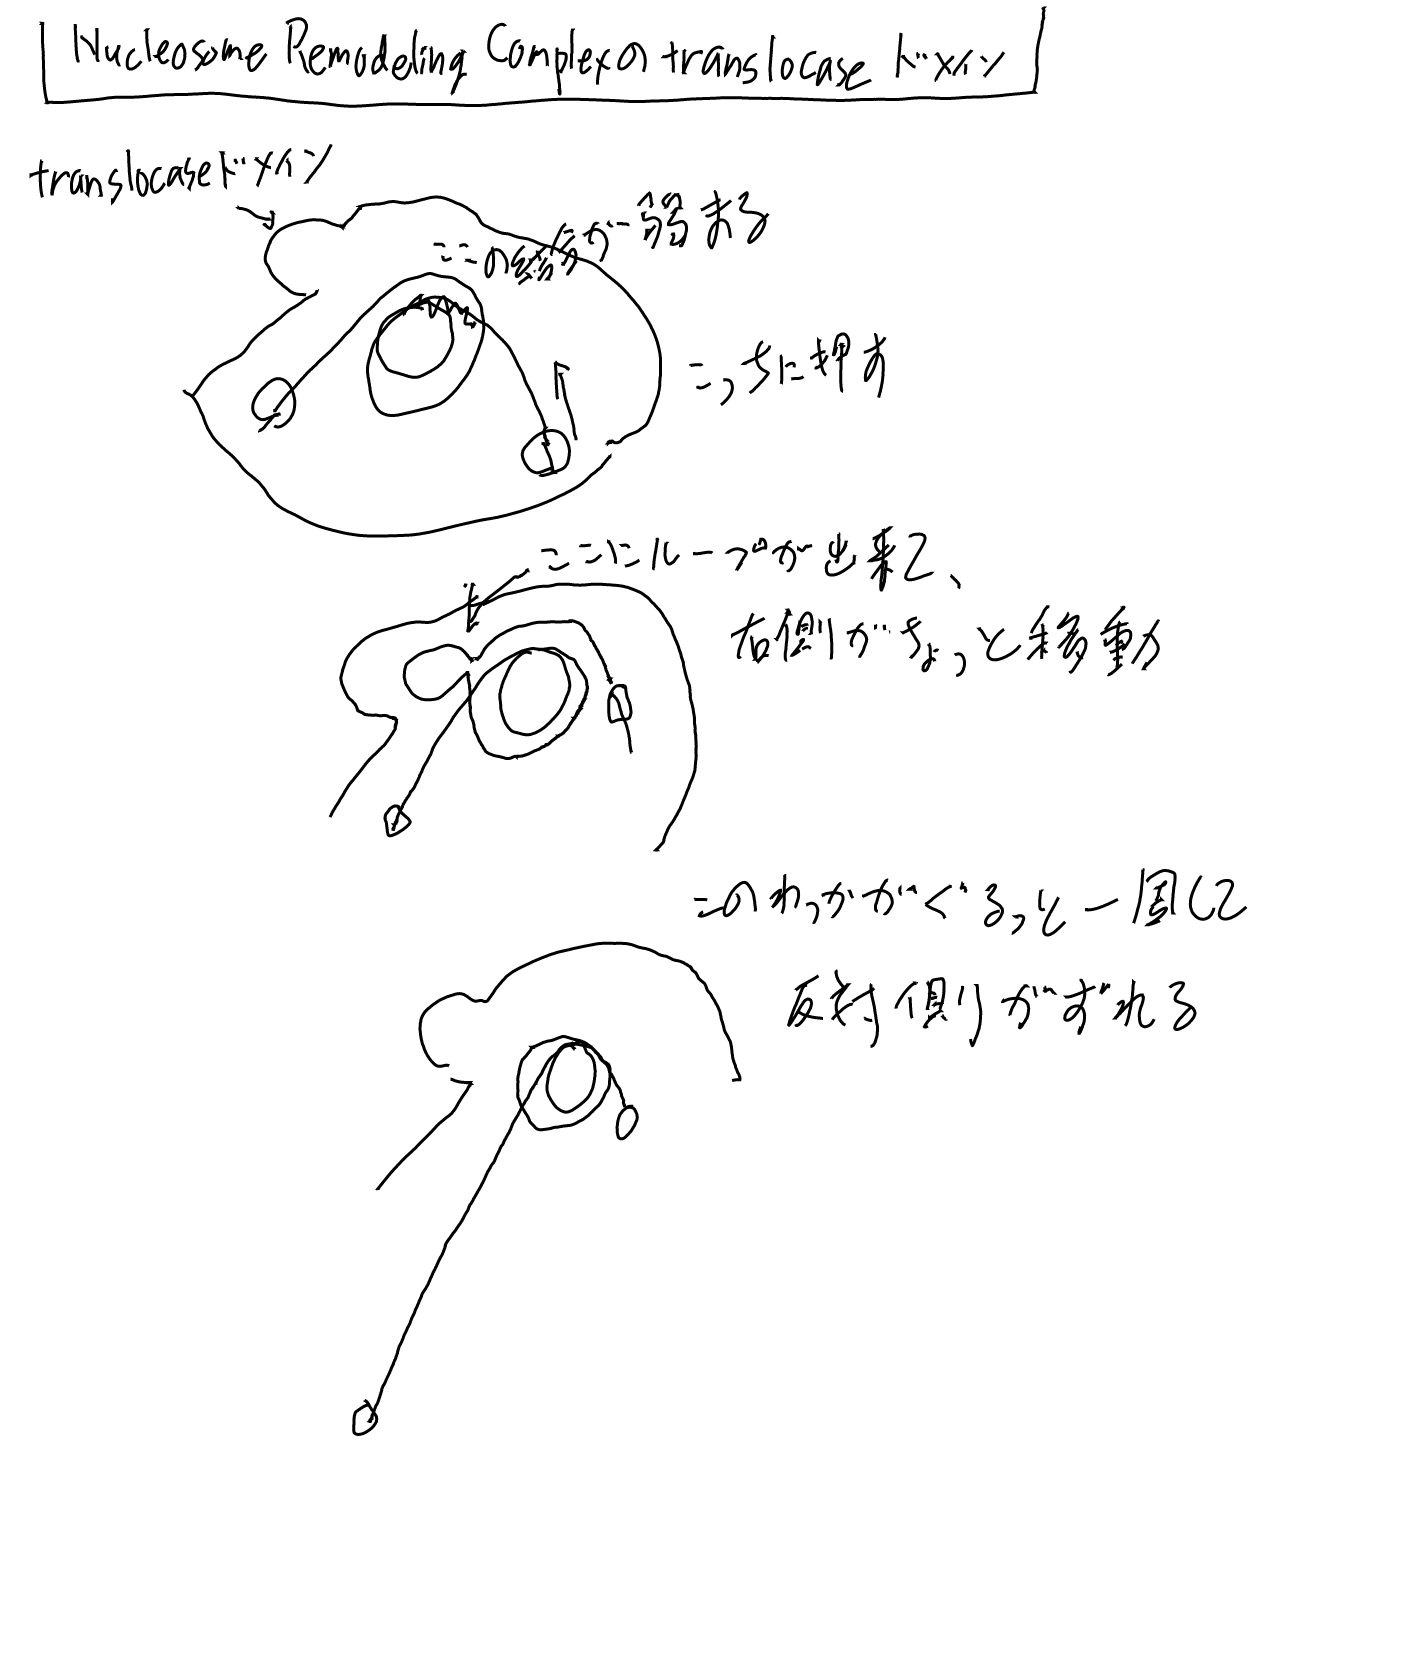 Nucleosome Remodeling Complexの translocase ドメイン
translocaseドメイン
ここの結合が弱まる
こっちに押す
ここにループが出来て、
右側がちょっと移動
このわっかがぐるっと一周して
反対側がずれる